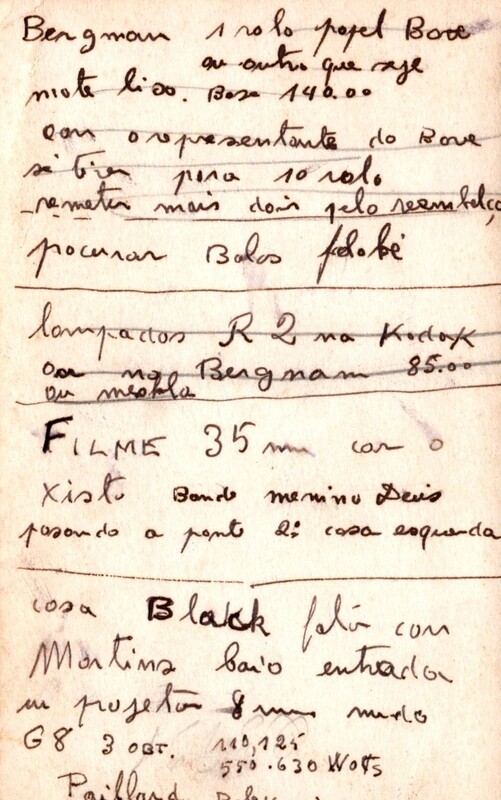 Bergman 1 rolo papel Bove
ou outro que seje
mate liso. Base 140.00
com o representante do Bove
se tira para 10 rolo
remeter mais dois pelo reembolço
pocurar Balas
lampadas R 2 na Kodak
ou na Bergnam 85.00
ou mesbla
FILME 35 mm cor o
Xisto Bando menino Deus
pasando a ponte 2ª casa esquerda
casa Black falá com
Martins baio entrada
um projetor 8 mm mudo
G8 3 OBT. 110,125
550.630 Wots
Paillard